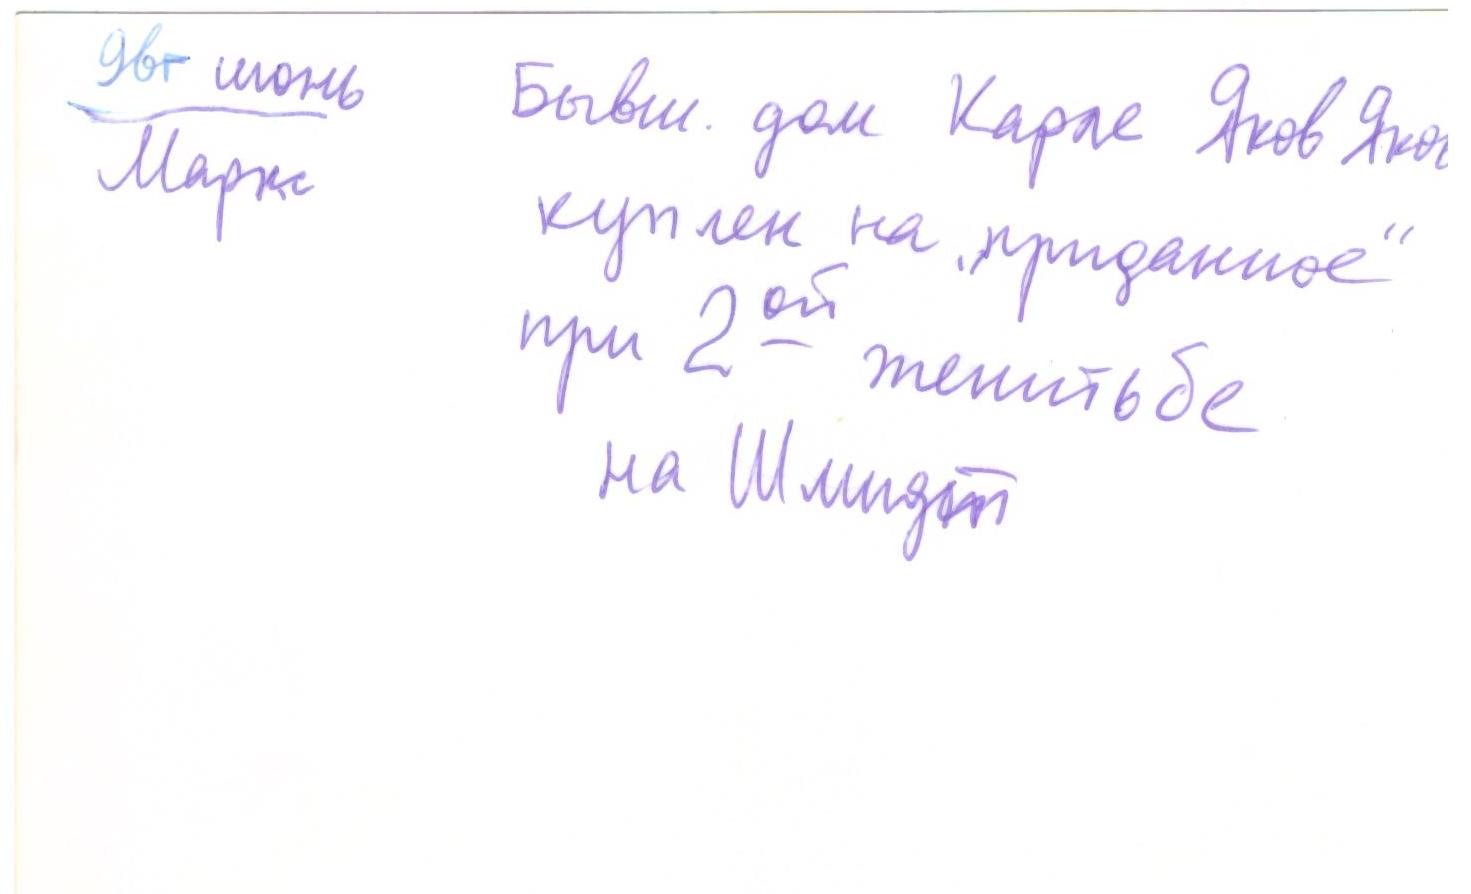 июнь
Маркс
Бывш. дом Карле Яков Яков
куплен на „приданное“
при 2ой женитьбе
на Шмидт